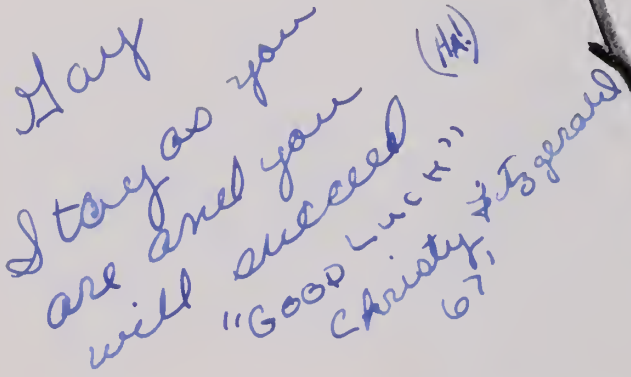 Gay
Stay as you
are and you (HA!)
will succeed
"GOOD LUCK"
Christy Fitzgerald
67'